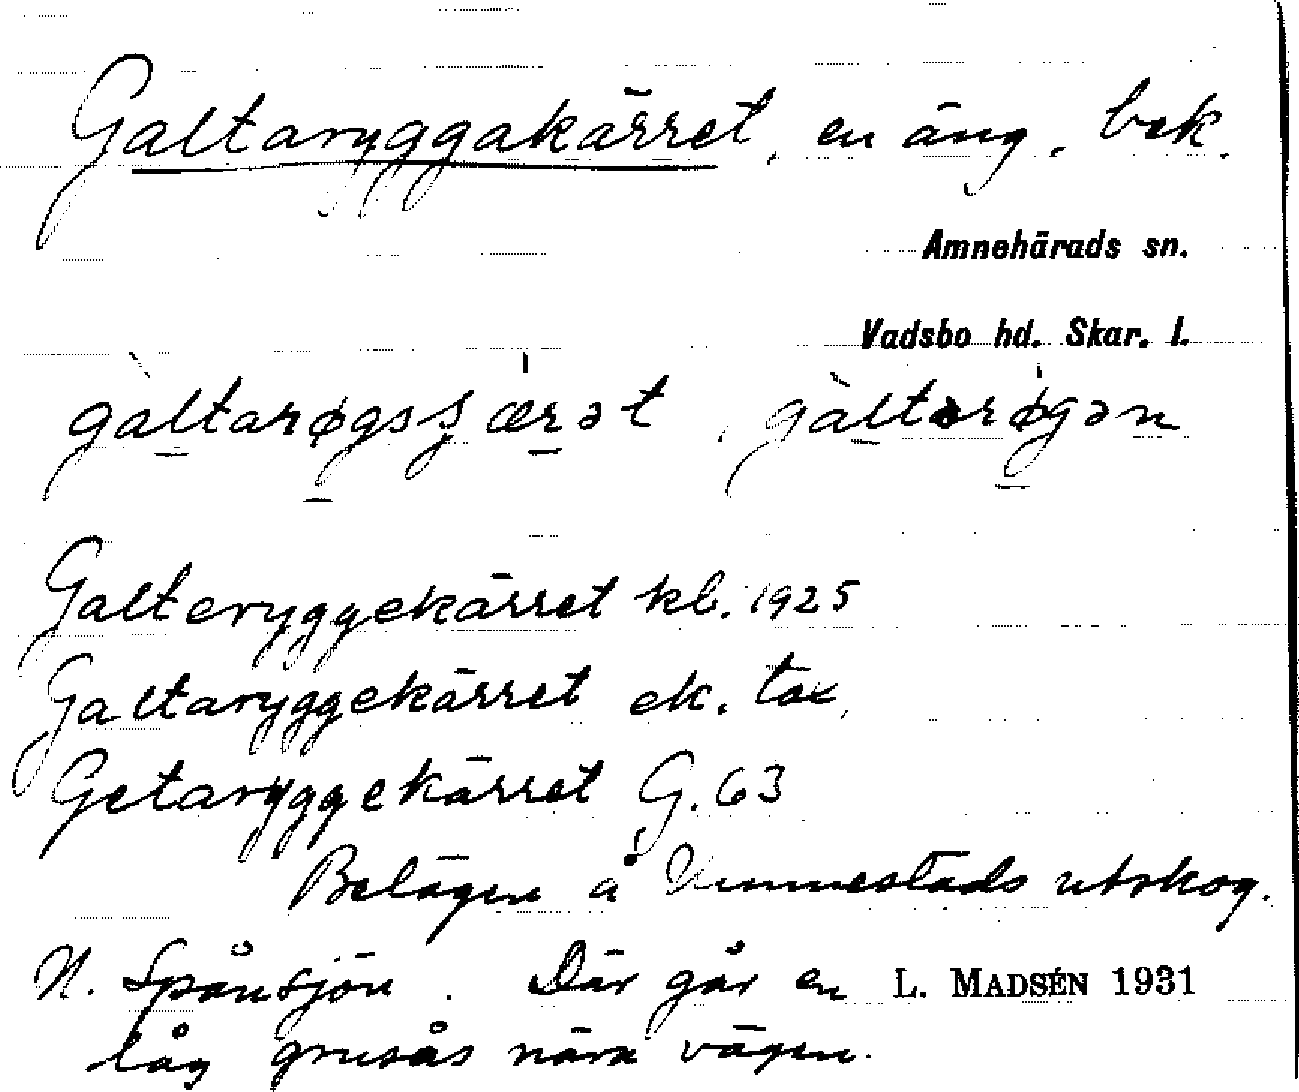 Galtaryggakärret, en äng, bek.
Amnehärads sn.
Vadsbo hd. Skar. l.
Galteryggekärret kb. 1925
Galtaryggekärret ek. tax.
Getaryggekärret G. 63
Belägen å utskog.
N. Spånsjön. Där går en L. MADSÉN 1931
låg grusås nära vägen.